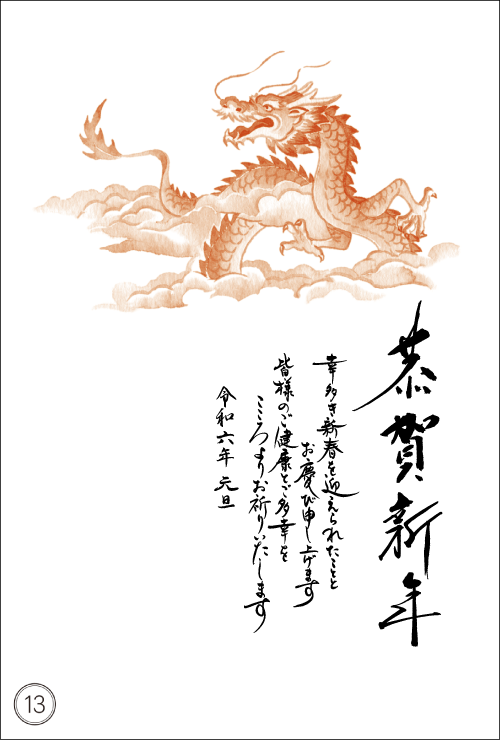 恭賀新年
幸多き新春を迎えられたことと
お慶び申し上げます
皆様のご健康とご多幸を
こころよりお祈りいたします
令和六年 元旦
13